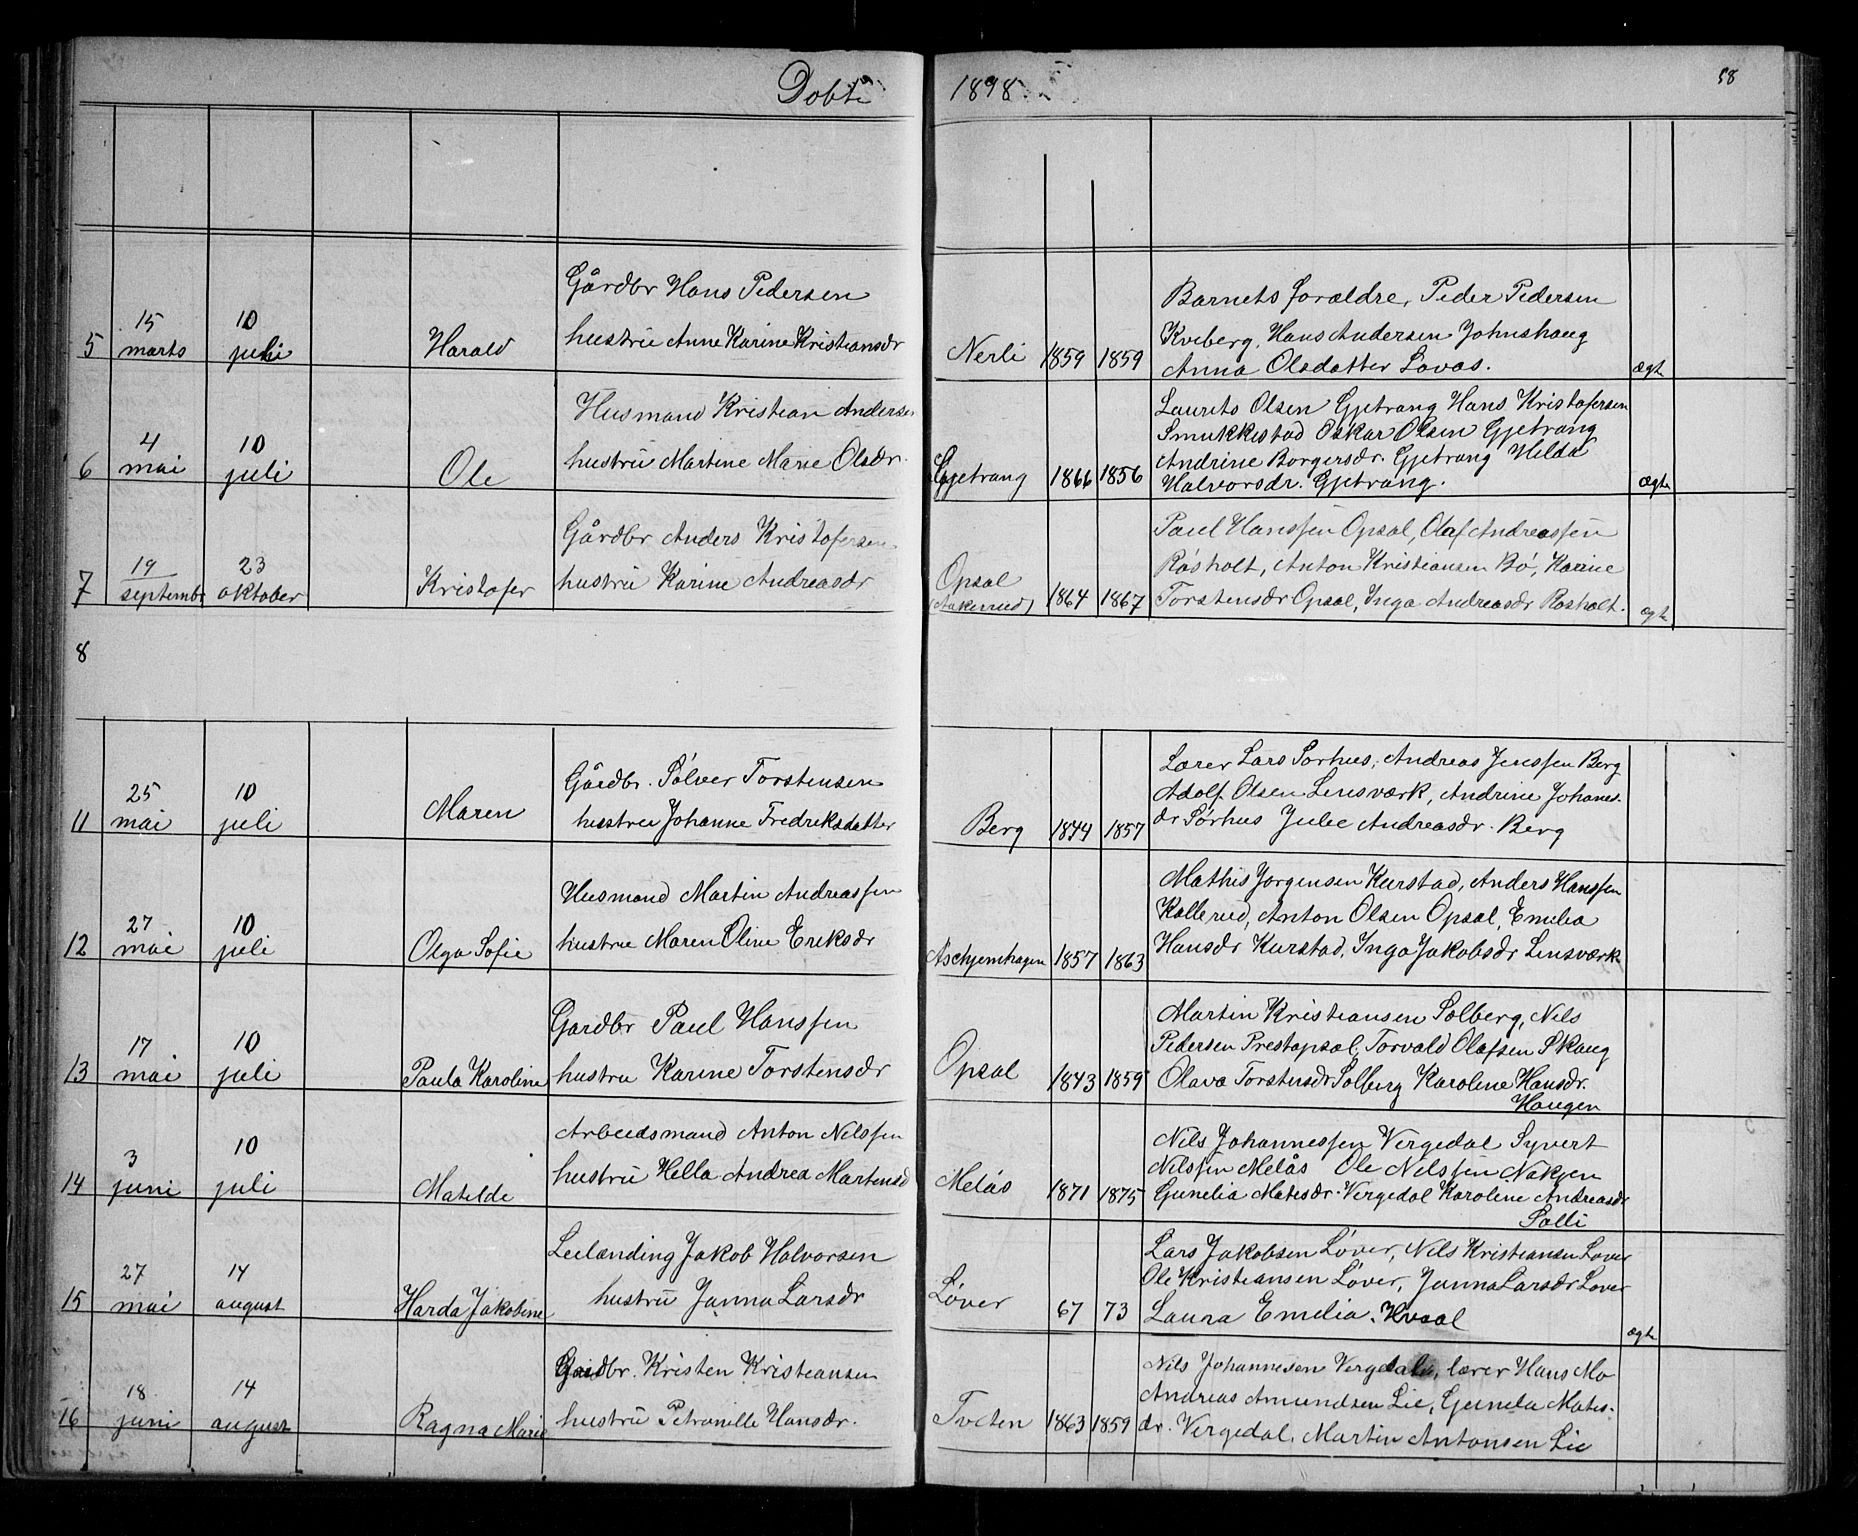 Døbte 1898.
58
5 15 marts 10 juli Harald
Gårdbr Hans Pedersen
hustru Anne Karine Kristiansdr
Nerli 1859 1859
Barnets forældre, Peder Pedersen
Kveberg, Hans Andersen Johnshaug
Anna Olsdatter Lovas.
ægte
6 4 mai 10 juli Ole
Husmand Kristian Andersen
hustru Martine Marie Olsdr.
Gjetrang 1866 1856
Laurits Olsen Gjetrang Hans Kristofersen
Smukkestad Oskar Olsen Gjetrang
Andrine Borgersdr. Gjetrang Hilda
Halvorsdr. Gjetrang.
ægte
7 19 septembr 23 oktober Kristofer
Gårdbr Anders Kristofersen
hustru Karine Andreasdr
Opsal
(Aakerud) 1864 1867
Paul Hanssen Opsal, Olaf Andreassen
Røsholt, Anton Kristiansen Bø, Karine
Torstensdr Opsal, Inga Andreasdr Røsholt.
ægte
8
11 25 mai 10 juli Maren
Gårdbr. Sølver Torstensen
hustru Johanne Fredriksdatter
Berg 1844 1857
Lærer Lars Sørhus, Andreas Jenssen Berg
Adolf Olsen Linsværk, Andrine Johanes-
dr Sørhus Julie Andreasdr. Berg
12 27 mai 10 juli Olga Sofie
Husmand Martin Andreassen
hustru Maren Oline Eriksdr
Aschjemhagen 1857 1863
Mathis Jørgensen Kurstad, Anders Hanssen
Kollerud, Anton Olsen Opsal, Emilia
Hansdr Kurstad, Inga Jakobsdr Linsværk
13 17 mai 10 juli Paula Karoline
Gårdbr Paul Hanssen
hustru Karine Torstensdr
Opsal 1843 1859
Martin Kristiansen Solberg, Nils
Pedersen Prestopsal, Torvald Olafsen Skaug
Olava Torstensdr Solberg Karoline Hansdr.
Haugen
14 3 juni 10 juli Matilde
Arbeidsmand Anton Nilssen
hustru Hella Andrea Martinsd
Melås 1871 1875
Nils Johannessen Vergedal Syvert
Nilssen Melås Ole Nilssen Nakjen
Gunelia Matisdr. Vergedal Karoline Andreasdr
Solli
15 27 mai 14 august Harda Jakobine
Leilænding Jakob Halvorsen
hustru Janna Larsdr
Løver 67 73
Lars Jakobsen Løver, Nils Kristiansen Løver
Ole Kristiansen Løver, Janna Larsdr Løver
Laura Emelia Kvaal
ægte
16 18 juni 14 august Ragna Marie
Gårdbr. Kristen Kristiansen
hustru Petronille Hansdr.
Tveten 1863 1859
Nils Johannesen Vergedal, lærer Hans Mo
Andreas Amundsen Lie, Gunela Matis-
dr. Vergedal, Martin Antonsen Lie